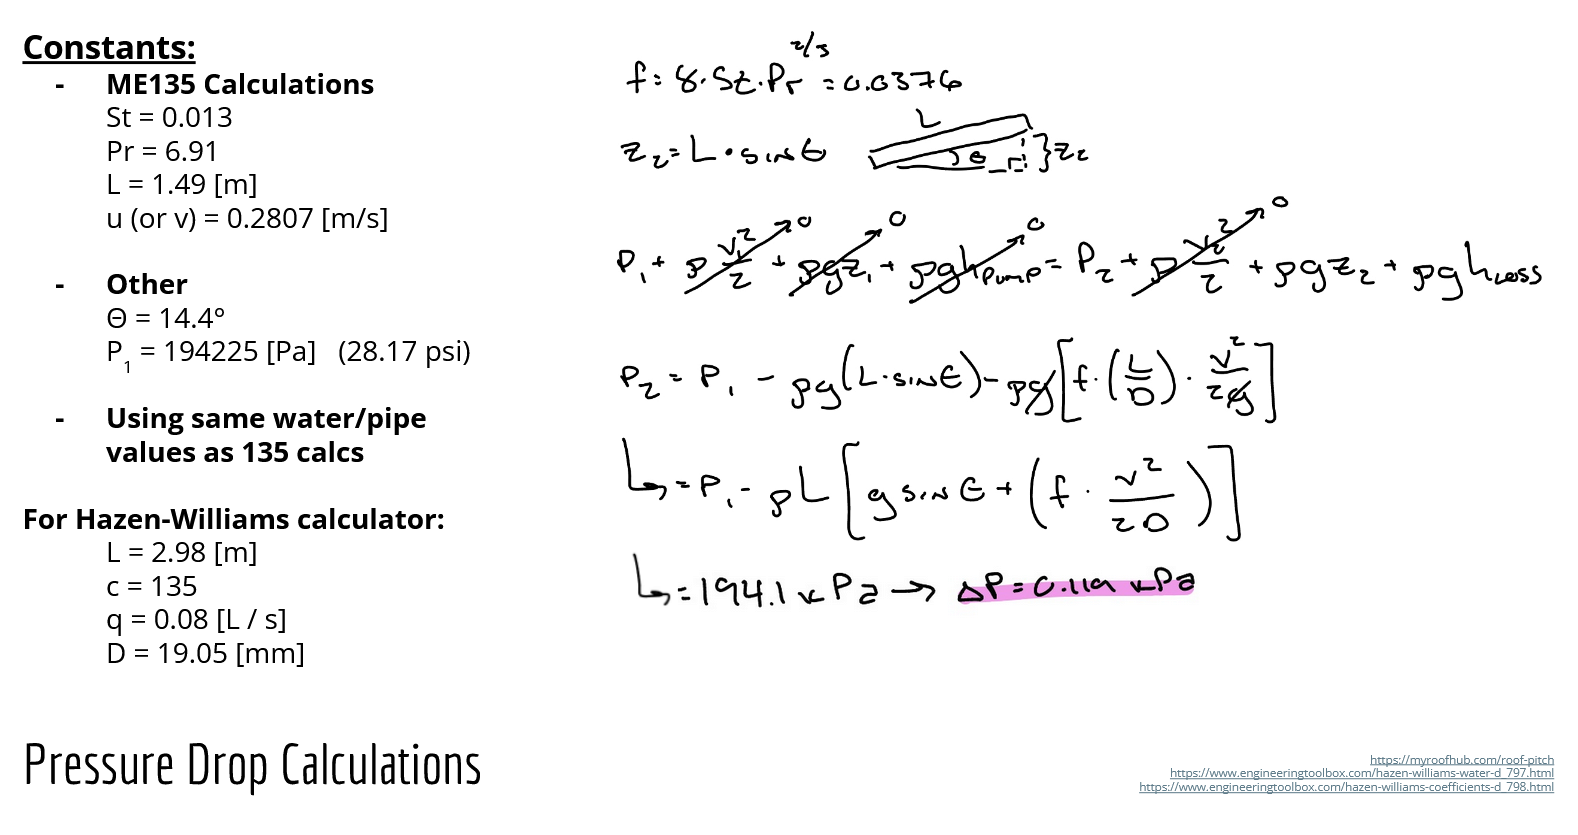 Constants:
- ME135 Calculations
St = 0.013
Pr = 6.91
L = 1.49 [m]
u (or v) = 0.2807 [m/s]
- Other
Θ = 14.4°
P₁ = 194225 [Pa] (28.17 psi)
- Using same water/pipe
values as 135 calcs
For Hazen-Williams calculator:
L = 2.98 [m]
c = 135
q = 0.08 [L / s]
D = 19.05 [mm]
Pressure Drop Calculations
f = 8·St·Pr^(2/3) = 0.0376
z₂ = L·sinθ
L
θ
z₂
P₁ + ρ v₁²/2 + ρgz₁ + ρgh_pump = P₂ + ρ v₂²/2 + ρgz₂ + ρgh_loss
0 0 0 0
P₂ = P₁ - ρg(L·sinθ) - ρg[f·(L/D)·v²/2g]
↳ = P₁ - ρL[g sinθ + (f·v²/2D)]
↳ = 194.1 kPa → ΔP = 0.119 kPa
https://myroofhub.com/roof-pitch
https://www.engineeringtoolbox.com/hazen-williams-water-d_797.html
https://www.engineeringtoolbox.com/hazen-williams-coefficients-d_798.html